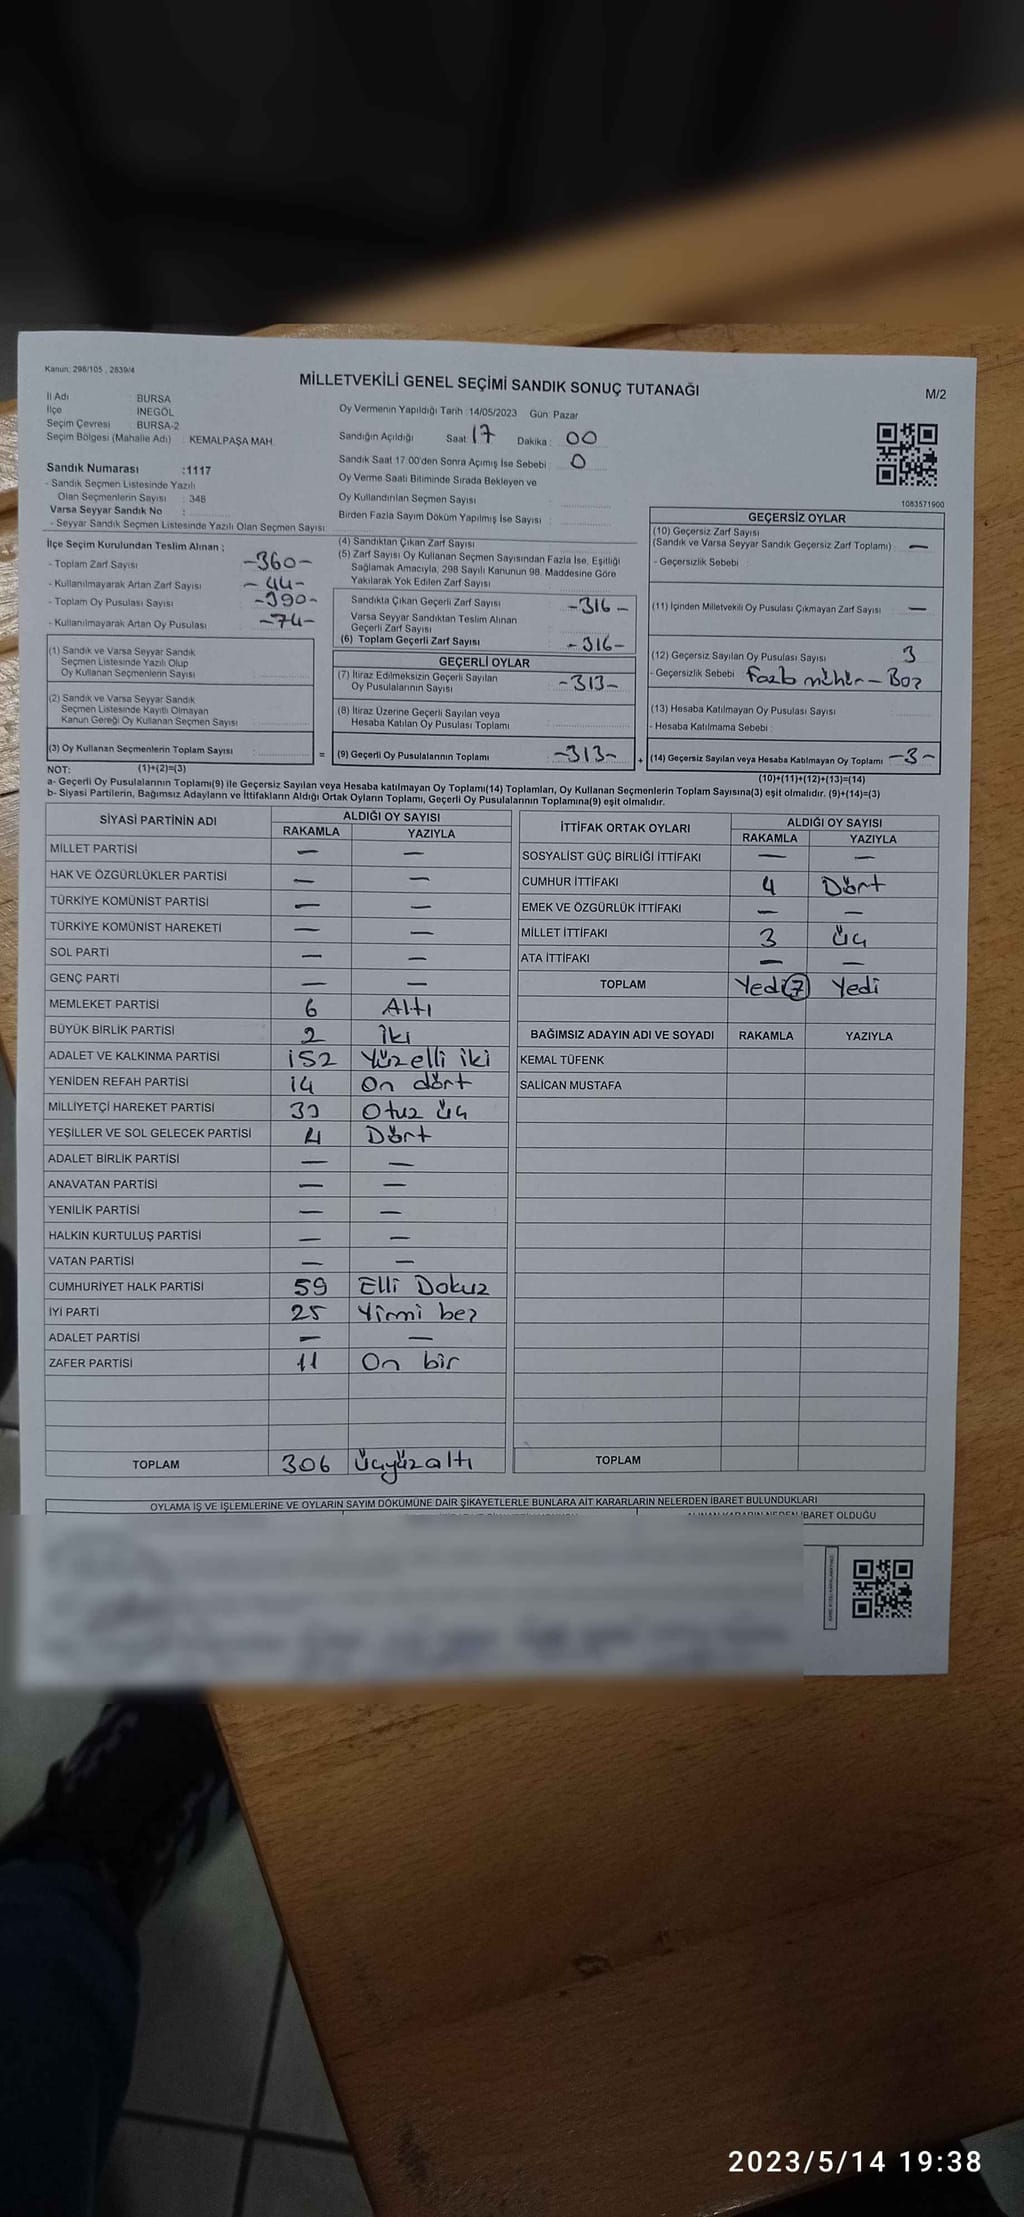 Kanun: 298/105 , 2839/4
MİLLETVEKİLİ GENEL SEÇİMİ SANDIK SONUÇ TUTANAĞI
M/2
İl Adı : BURSA
İlçe : İNEGÖL
Seçim Çevresi : BURSA-2
Seçim Bölgesi (Mahalle Adı) : KEMALPAŞA MAH.
Oy Vermenin Yapıldığı Tarih : 14/05/2023 Gün: Pazar
Sandığın Açıldığı Saat: 17 Dakika : 00
Sandık Saat 17:00'den Sonra Açımış İse Sebebi : 0
Oy Verme Saati Bitiminde Sırada Bekleyen ve
Oy Kullandırılan Seçmen Sayısı
Birden Fazla Sayım Döküm Yapılmış İse Sayısı :
1083571900
Sandık Numarası :1117
- Sandık Seçmen Listesinde Yazılı
Olan Seçmenlerin Sayısı : 348
Varsa Seyyar Sandık No :
- Seyyar Sandık Seçmen Listesinde Yazılı Olan Seçmen Sayısı
İlçe Seçim Kurulundan Teslim Alınan :
- Toplam Zarf Sayısı -360-
- Kullanılmayarak Artan Zarf Sayısı -44-
- Toplam Oy Pusulası Sayısı -390-
- Kullanılmayarak Artan Oy Pusulası -74-
(1) Sandık ve Varsa Seyyar Sandık
Seçmen Listesinde Yazılı Olup
Oy Kullanan Seçmenlerin Sayısı
(2) Sandık ve Varsa Seyyar Sandık
Seçmen Listesinde Kayıtlı Olmayan
Kanun Gereği Oy Kullanan Seçmen Sayısı
(3) Oy Kullanan Seçmenlerin Toplam Sayısı =
(4) Sandıktan Çıkan Zarf Sayısı
(5) Zarf Sayısı Oy Kullanan Seçmen Sayısından Fazla İse, Eşitliği
Sağlamak Amacıyla, 298 Sayılı Kanunun 98. Maddesine Göre
Yakılarak Yok Edilen Zarf Sayısı
Sandıkta Çıkan Geçerli Zarf Sayısı -316-
Varsa Seyyar Sandıktan Teslim Alınan
Geçerli Zarf Sayısı
(6) Toplam Geçerli Zarf Sayısı -316-
GEÇERLİ OYLAR
(7) İtiraz Edilmeksizin Geçerli Sayılan
Oy Pusulalarının Sayısı -313-
(8) İtiraz Üzerine Geçerli Sayılan veya
Hesaba Katılan Oy Pusulası Toplamı
(9) Geçerli Oy Pusulalarının Toplamı -313- +
GEÇERSİZ OYLAR
(10) Geçersiz Zarf Sayısı
(Sandık ve Varsa Seyyar Sandık Geçersiz Zarf Toplamı) : —
- Geçersizlik Sebebi :
(11) İçinden Milletvekili Oy Pusulası Çıkmayan Zarf Sayısı —
(12) Geçersiz Sayılan Oy Pusulası Sayısı 3
- Geçersizlik Sebebi Fazla mühür - Boş
(13) Hesaba Katılmayan Oy Pusulası Sayısı
- Hesaba Katılmama Sebebi :
(14) Geçersiz Sayılan veya Hesaba Katılmayan Oy Toplamı -3-
NOT: (1)+(2)=(3)
(10)+(11)+(12)+(13)=(14)
a- Geçerli Oy Pusulalarının Toplamı(9) ile Geçersiz Sayılan veya Hesaba katılmayan Oy Toplamı(14) Toplamları, Oy Kullanan Seçmenlerin Toplam Sayısına(3) eşit olmalıdır. (9)+(14)=(3)
b- Siyasi Partilerin, Bağımsız Adayların ve İttifakların Aldığı Ortak Oyların Toplamı, Geçerli Oy Pusulalarının Toplamına(9) eşit olmalıdır.
SİYASİ PARTİNİN ADI ALDIĞI OY SAYISI
RAKAMLA YAZIYLA
MİLLET PARTİSİ — —
HAK VE ÖZGÜRLÜKLER PARTİSİ — —
TÜRKİYE KOMÜNİST PARTİSİ — —
TÜRKİYE KOMÜNİST HAREKETİ — —
SOL PARTİ — —
GENÇ PARTİ — —
MEMLEKET PARTİSİ 6 Altı
BÜYÜK BİRLİK PARTİSİ 2 İki
ADALET VE KALKINMA PARTİSİ 152 Yüzelli iki
YENİDEN REFAH PARTİSİ 14 On dört
MİLLİYETÇİ HAREKET PARTİSİ 33 Otuz üç
YEŞİLLER VE SOL GELECEK PARTİSİ 4 Dört
ADALET BİRLİK PARTİSİ — —
ANAVATAN PARTİSİ — —
YENİLİK PARTİSİ — —
HALKIN KURTULUŞ PARTİSİ — —
VATAN PARTİSİ — —
CUMHURİYET HALK PARTİSİ 59 Elli Dokuz
İYİ PARTİ 25 Yirmi beş
ADALET PARTİSİ — —
ZAFER PARTİSİ 11 On bir
TOPLAM 306 Üçyüzaltı
İTTİFAK ORTAK OYLARI ALDIĞI OY SAYISI
RAKAMLA YAZIYLA
SOSYALİST GÜÇ BİRLİĞİ İTTİFAKI — —
CUMHUR İTTİFAKI 4 Dört
EMEK VE ÖZGÜRLÜK İTTİFAKI — —
MİLLET İTTİFAKI 3 Üç
ATA İTTİFAKI — —
TOPLAM Yedi 7 Yedi
BAĞIMSIZ ADAYIN ADI VE SOYADI RAKAMLA YAZIYLA
KEMAL TÜFENK
SALİCAN MUSTAFA
TOPLAM
OYLAMA İŞ VE İŞLEMLERİNE VE OYLARIN SAYIM DÖKÜMÜNE DAİR ŞİKAYETLERLE BUNLARA AİT KARARLARIN NELERDEN İBARET BULUNDUKLARI
ALINAN KARARIN NEDEN İBARET OLDUĞU
2023/5/14 19:38